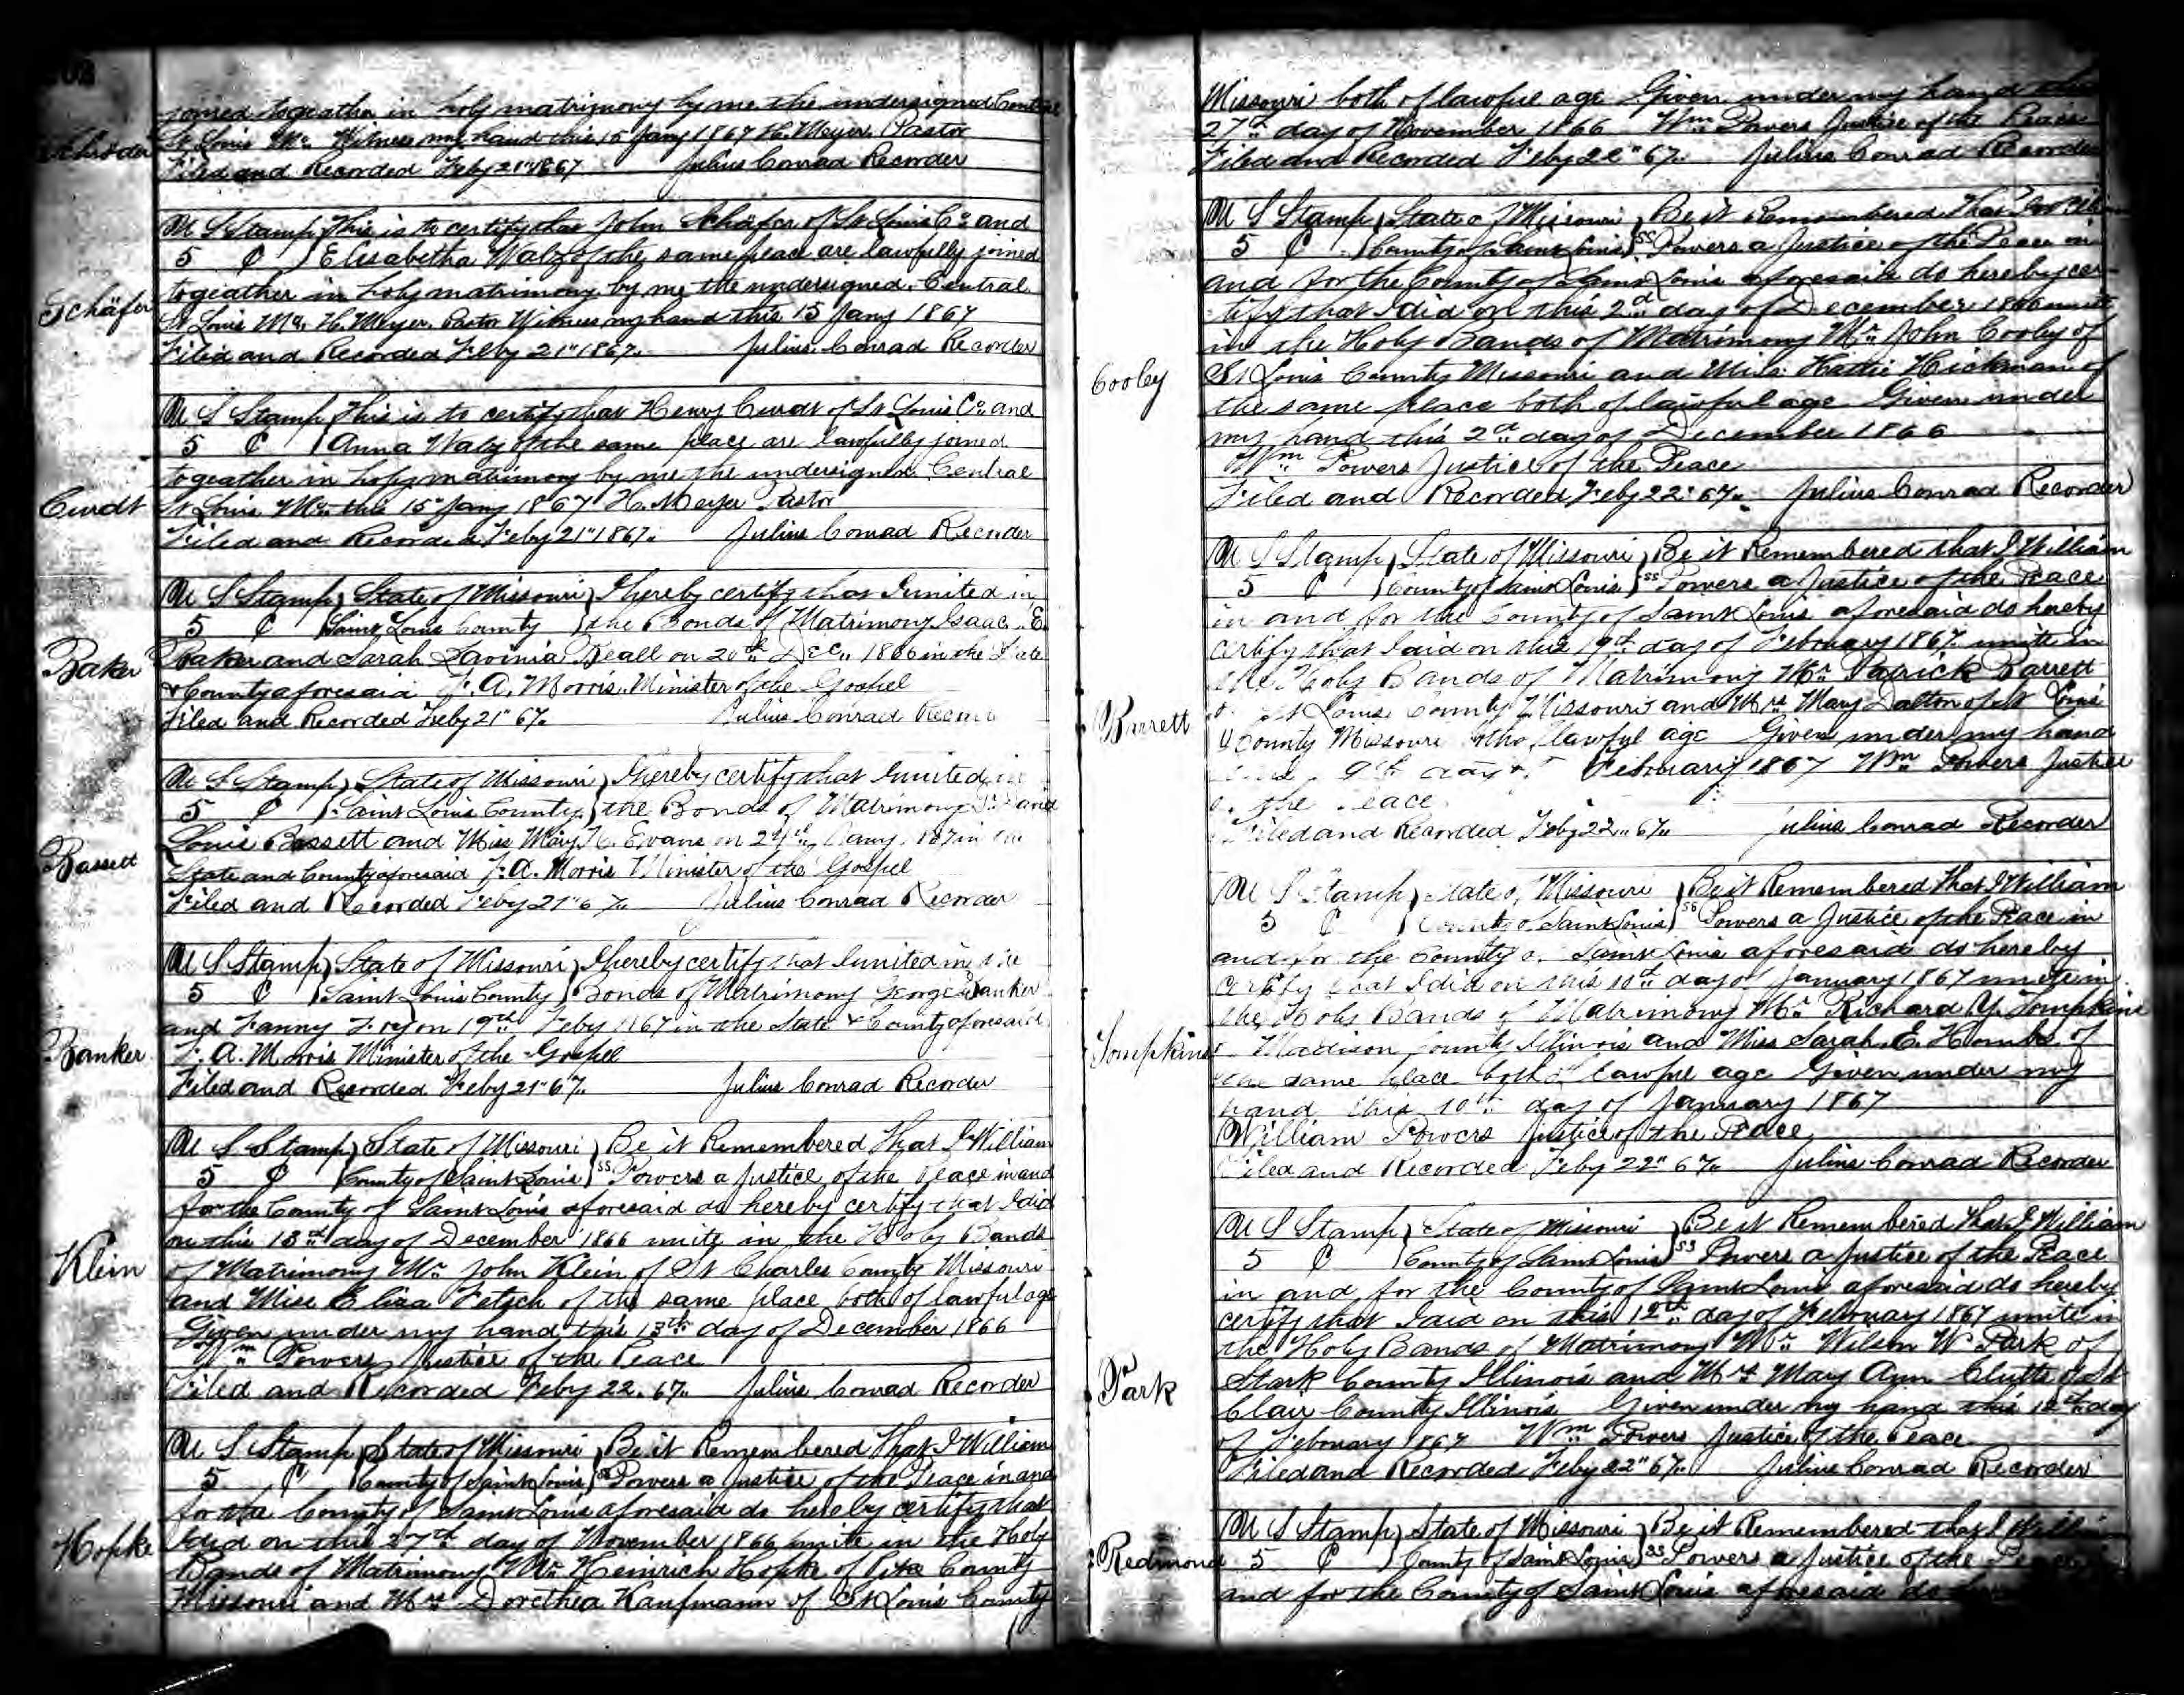 Schröder
joined togeather in holy matrimony by me the undersigned Central
St Louis Mo. Witness my hand this 15 Jany 1867 H. Meyer. Pastor
Filed and Recorded Feby 21" 1867 Julius Conrad Recorder
U S Stamp This is to certify that John Schäfer of St Louis Co. and
5 ¢ Elisabetha Walz of the same peace are lawfully joined
togeather in holy matrimony by me the undersigned. Central
Schäfer
St Louis Mo. H. Meyer. Pastor Witness my hand this 15 Jany 1867
Filed and Recorded Feby 21" 1867. Julius Conrad Recorder
U S Stamp This is to certify that Henry Curdt of St Louis Co. and
5 ¢ Anna Walz of the same place are lawfully joined
togeather in holy matrimony by me the undersigned. Central
Curdt
St Louis Mo. this 15" Jany 1867 H. Meyer Pastor
Filed and Recorded Feby 21" 1867. Julius Conrad Recorder
U S Stamp State of Missouri I hereby certify that I united in
5 ¢ Saint Louis County the Bonds of Matrimony Isaac E.
Baker
Baker and Sarah Lavinia Beall on 20th Dec. 1866 in the State
& County aforesaid F. A. Morris. Minister of the Gospel
Filed and Recorded Feby 21" 67. Julius Conrad
U S Stamp State of Missouri I hereby certify that I united in
5 ¢ Saint Louis County the Bonds of Matrimony
Bassett
Louis Bassett and Miss Mary Evans on 24th Jany. 1867 in the
State and County aforesaid F. A. Morris Minister of the Gospel
Filed and Recorded Feby 21" 67. Julius Conrad Recorder
U S Stamp State of Missouri I hereby certify that I united in the
5 ¢ Saint Louis County Bonds of Matrimony George Banker
and Fanny Foy on 19th Feby 1867 in the State & County aforesaid
Banker
F. A. Morris Minister of the Gospel
Filed and Recorded Feby 21" 67. Julius Conrad Recorder
U S Stamp State of Missouri Be it Remembered that I William
5 ¢ County of Saint Louis ss Powers a Justice of the Peace in and
for the County of Saint Louis aforesaid do hereby certify that I did
on this 13th day of December 1866 unite in the Holy Bands
Klein
of Matrimony Mr. John Klein of St Charles County Missouri
and Miss Eliza Fetsch of the same place both of lawful age
Given under my hand this 13th day of December 1866
Wm Powers Justice of the Peace
Filed and Recorded Feby 22. 67. Julius Conrad Recorder
U S Stamp State of Missouri Be it Remembered that I William
5 ¢ County of Saint Louis Powers a Justice of the Peace in and
for the County of Saint Louis aforesaid do hereby certify that
Hopke
I did on this 27th day of November 1866 unite in the Holy
Bands of Matrimony Mr. Heinrich Hopke of Pike County
Missouri and Mrs Dorethia Kaufmann of St Louis County
Missouri both of lawful age Given under my hand this
27th day of November 1866 Wm Powers Justice of the Peace
Filed and Recorded Feby 22" 67. Julius Conrad Recorder
U S Stamp State of Missouri Be it Remembered that I William
5 ¢ County of Saint Louis ss Powers a Justice of the Peace in
and for the County of Saint Louis aforesaid do hereby cer-
tify that I did on this 2d day of December 1866 unite
in the Holy Bands of Matrimony Mr. John Cooley of
Cooley
St Louis County Missouri and Miss Hattie Hickman of
the same place both of lawful age Given under
my hand this 2d day of December 1866
Wm Powers Justice of the Peace
Filed and Recorded Feby 22" 67. Julius Conrad Recorder
U S Stamp State of Missouri Be it Remembered that I William
5 ¢ County of Saint Louis ss Powers a Justice of the Peace
in and for the County of Saint Louis aforesaid do hereby
certify that I did on this 19th day of February 1867 unite in
the Holy Bands of Matrimony Mr. Patrick Barrett
Barrett
of St Louis County Missouri and Mrs Mary Dalton of St Louis
County Missouri both of lawful age Given under my hand
day of February 1867 Wm Powers Justice
of the Peace
Filed and Recorded Feby 22" 67. Julius Conrad Recorder
U S Stamp State of Missouri Be it Remembered that I William
5 ¢ County of Saint Louis ss Powers a Justice of the Peace in
and for the County of Saint Louis aforesaid do hereby
certify that I did on this 10th day of January 1867 unite in
the Holy Bands of Matrimony Mr. Richard Y. Tompkins
Tompkins
Madison County Illinois and Miss Sarah E. Kombs of
the same place both of lawful age Given under my
hand this 10th day of January 1867
William Powers Justice of the Peace
Filed and Recorded Feby 22" 67. Julius Conrad Recorder
U S Stamp State of Missouri Be it Remembered that I William
5 ¢ County of Saint Louis ss Powers a Justice of the Peace
in and for the County of Saint Louis aforesaid do hereby
certify that I did on this 12th day of February 1867 unite in
the Holy Bands of Matrimony Mr. Wilson W Park of
Park
Stark County Illinois and Mrs Mary Ann Clutts of St
Clair County Illinois Given under my hand this 12th day
of February 1867 Wm Powers Justice of the Peace
Filed and Recorded Feby 22" 67. Julius Conrad Recorder
U S Stamp State of Missouri Be it Remembered that I William
Redmond
5 ¢ County of Saint Louis ss Powers a Justice of the Peace
and for the County of Saint Louis aforesaid do